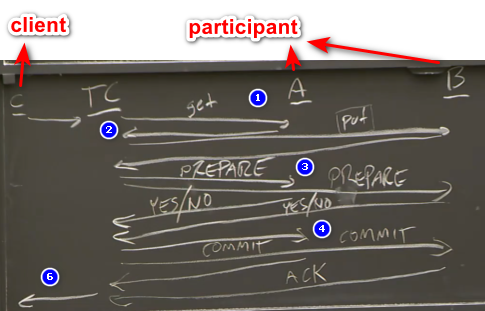 client
participant
C TC A B
1
get
2
put
PREPARE 3 PREPARE
YES/NO YES/NO
4
COMMIT COMMIT
6
ACK